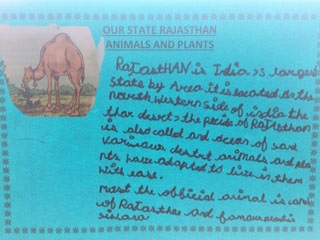 OUR STATE RAJASTHAN
ANIMALS AND PLANTS
RAJASTHAN is India's largest
State by Area it is located on the
north western side of india the
thar desert, the pride of Rajasthan
is also called and ocean of sand
various desert animals and pla
nts have adapted to live in them
with ease.
most the official animal is
of Rajasthan and famous